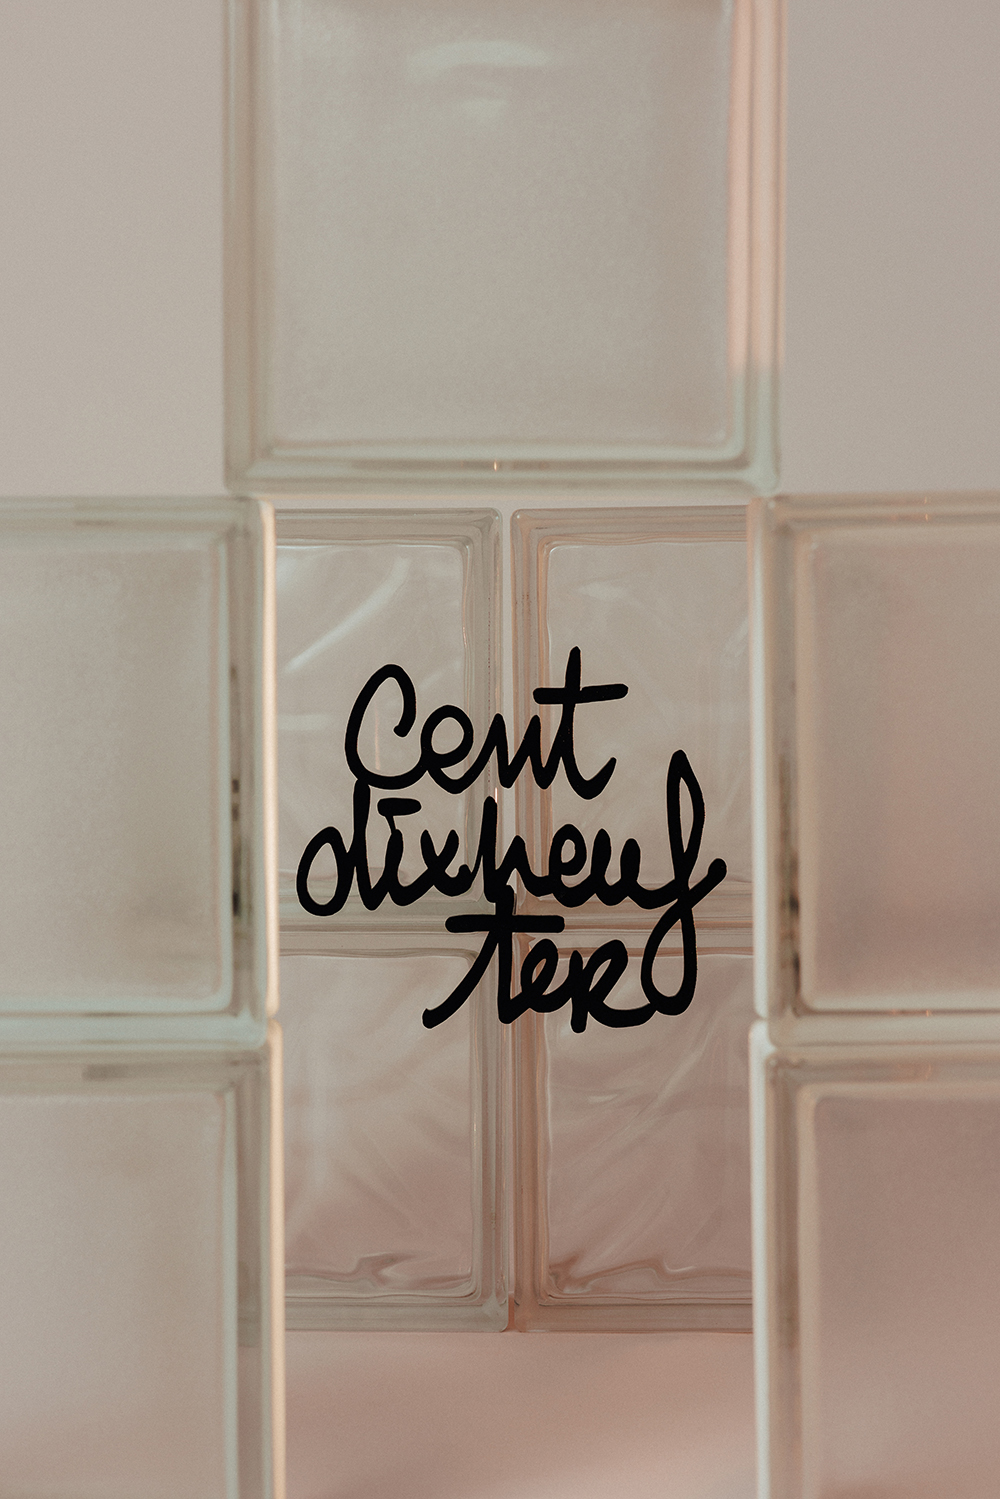 Cent
dixneuf
ter